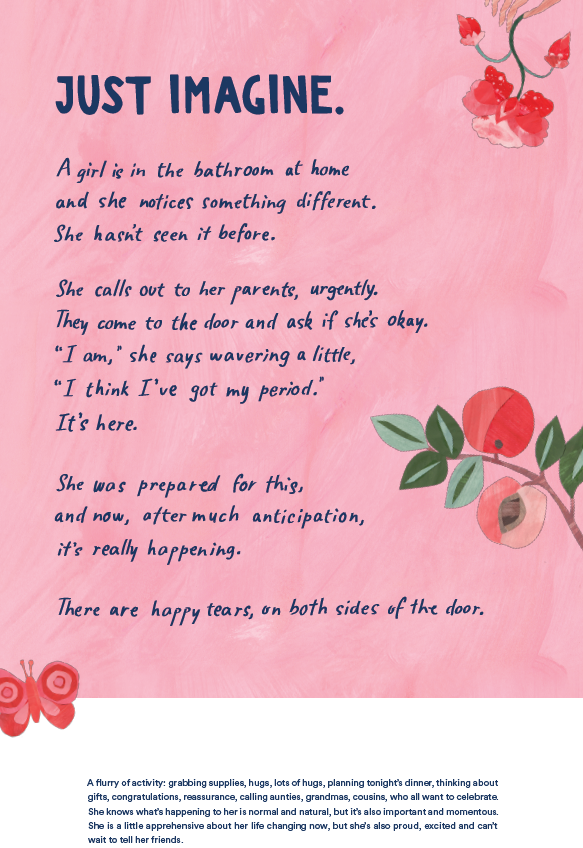 JUST IMAGINE.
A girl is in the bathroom at home
and she notices something different.
She hasn't seen it before.
She calls out to her parents, urgently.
They come to the door and ask if she's okay.
“I am,” she says wavering a little,
“I think I've got my period.”
It's here.
She was prepared for this,
and now, after much anticipation,
it's really happening.
There are happy tears, on both sides of the door.
A flurry of activity: grabbing supplies, hugs, lots of hugs, planning tonight's dinner, thinking about
gifts, congratulations, reassurance, calling aunties, grandmas, cousins, who all want to celebrate.
She knows what's happening to her is normal and natural, but it's also important and momentous.
She is a little apprehensive about her life changing now, but she's also proud, excited and can't
wait to tell her friends.